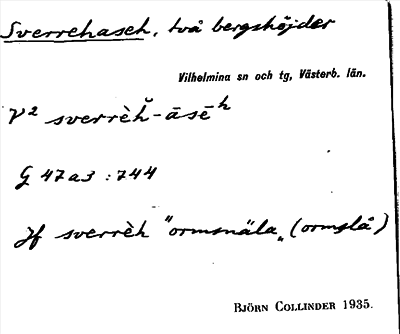 Sverrehaseh, två bergshöjder
Vilhelmina sn och tg, Västerb. län.
V² sverrèȟ-āsēʰ
G 47a3 : 744
Jf sverrèh "ormsnäla" (ormslå)
BJÖRN COLLINDER 1935.